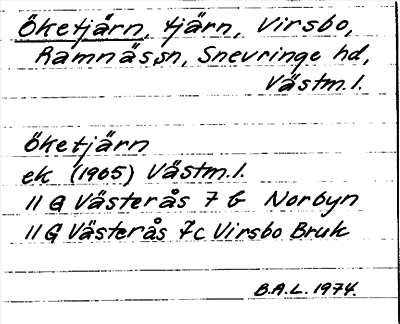 Öketjärn, tjärn, Virsbo,
Ramnäs sn, Snevringe hd,
Västm. l.
Öketjärn
ek (1965) Västm. l.
11 G Västerås 7 b Norbyn
11 G Västerås 7c Virsbo Bruk
B.A.L. 1974.